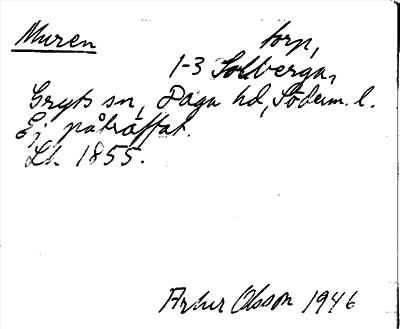 Muren torp,
1-3 Solberga,
Gryts sn, Daga hd, Söderm. l.
Ej påträffat.
Lk 1855.
Artur Olsson 1946